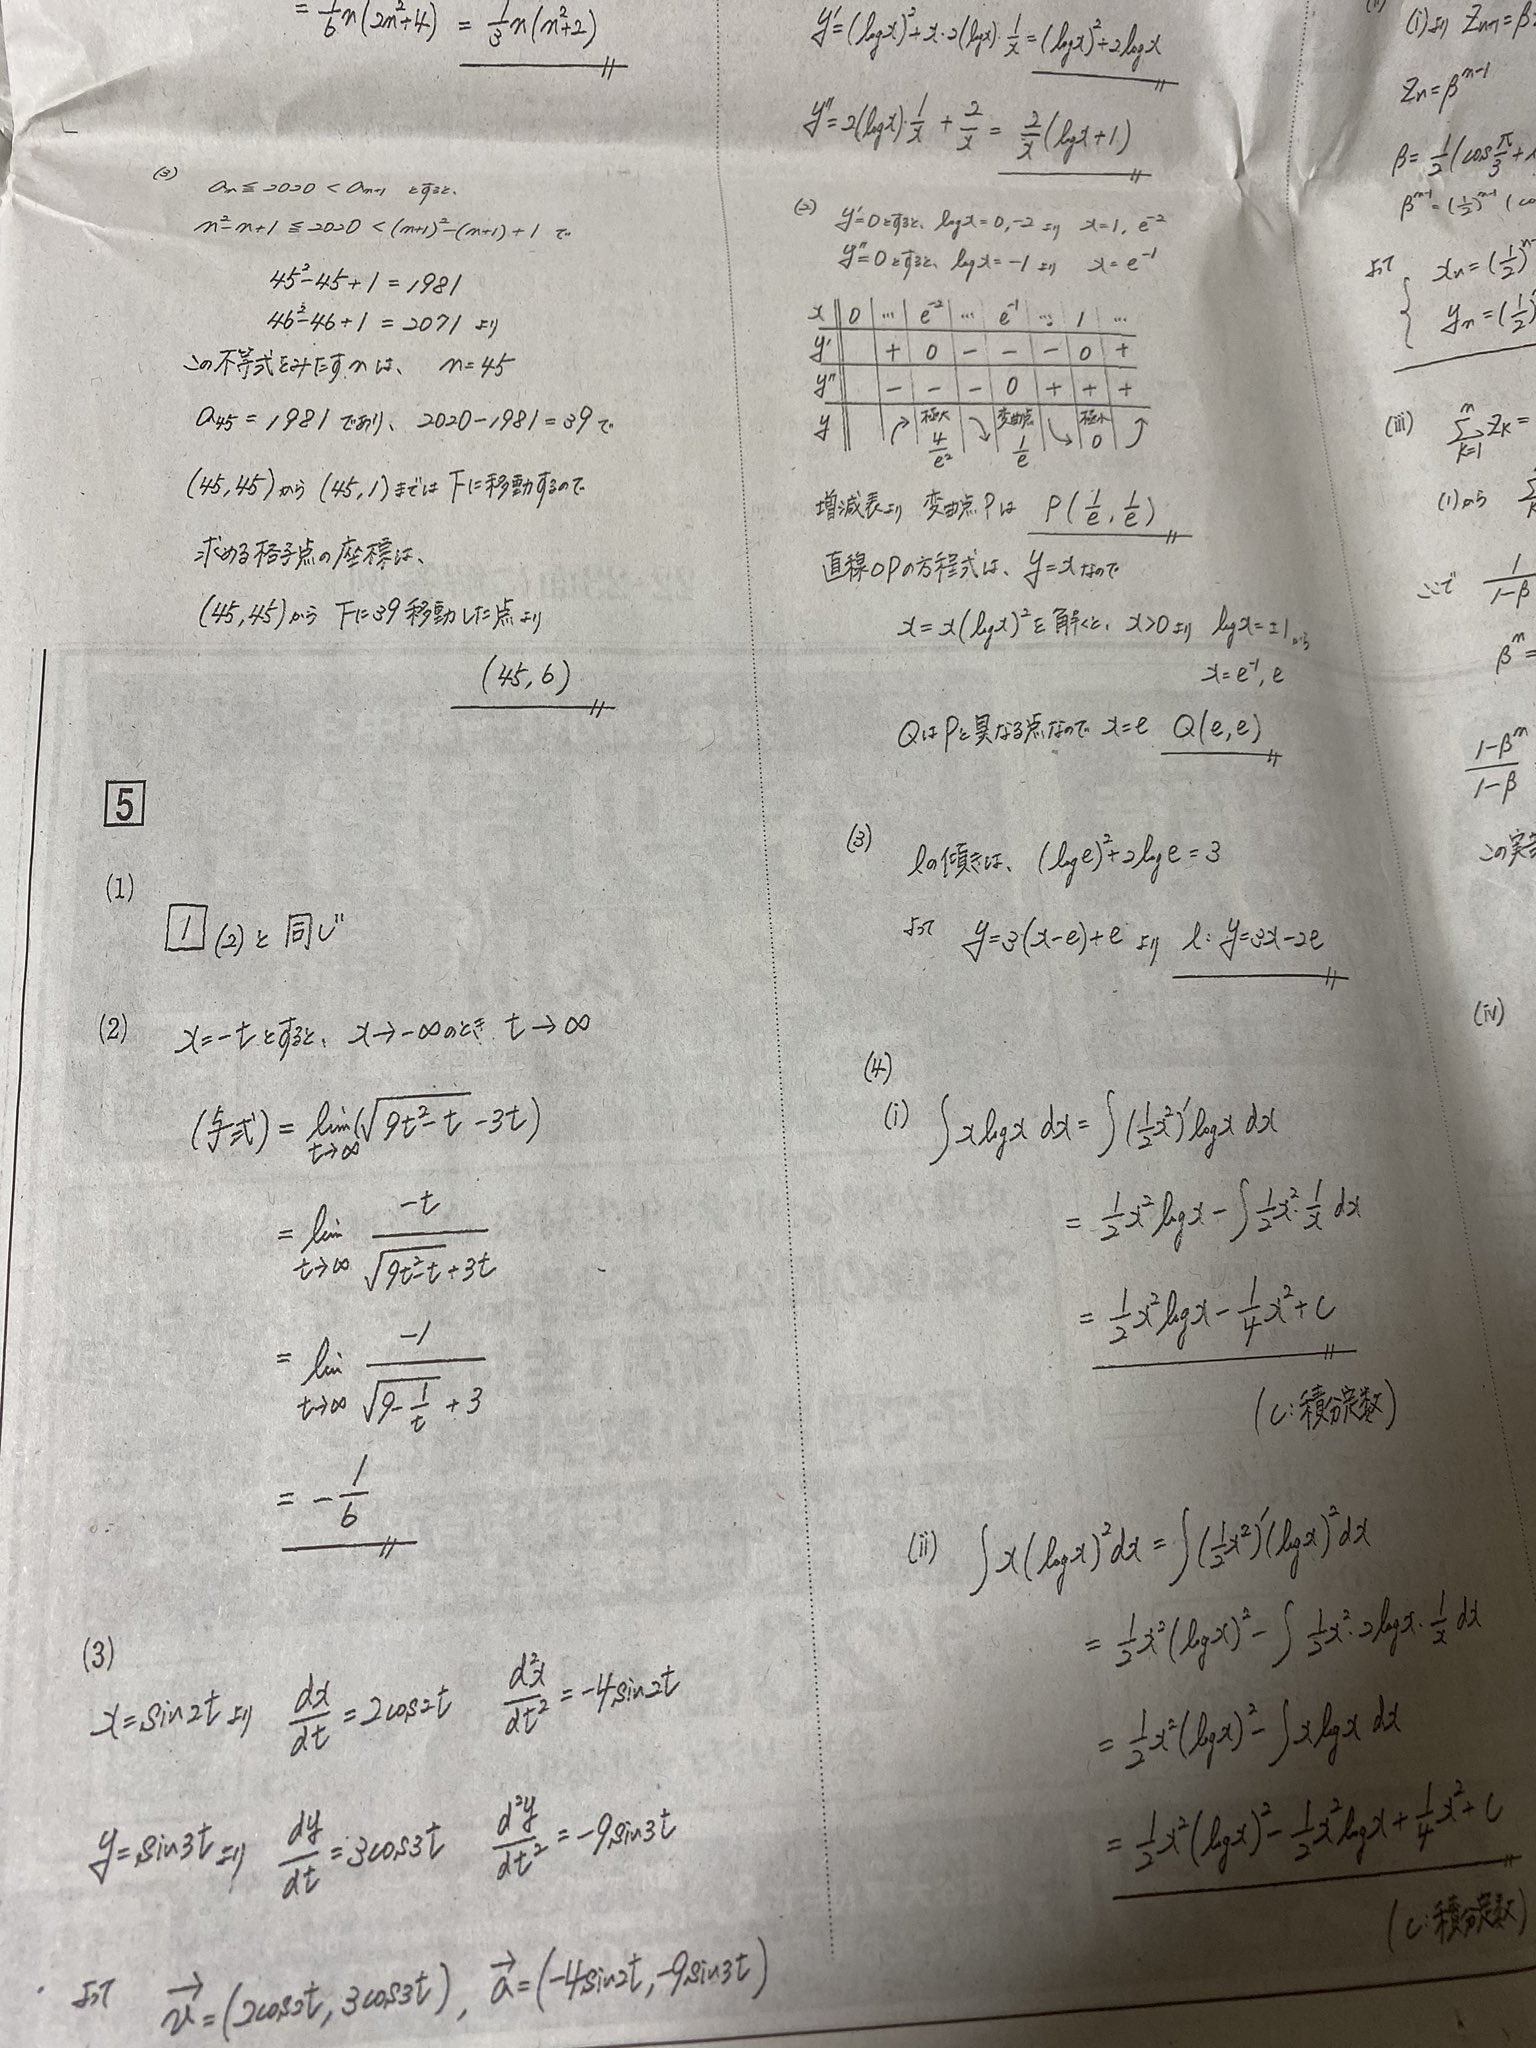 = 1/6 n(2n²+4) = 1/3 n(n²+2)
(3) an ≦ 2020 < an+1 とすると、
n²-n+1 ≦ 2020 < (n+1)²-(n+1)+1 で
45²-45+1 = 1981
46²-46+1 = 2071 より
この不等式をみたすnは、 n=45
a45 = 1981 であり、 2020-1981=39で
(45,45)から (45,1)までは 下に移動するので
求める格子点の座標は、
(45,45)から 下に39移動した点より
(45,6)
5
(1)
1 (2)と同じ
(2) x=-tとすると、 x→-∞のとき t→∞
(与式) = lim t→∞ (√(9t²-t) -3t)
= lim t→∞ -t/(√(9t²-t)+3t)
= lim t→∞ -1/(√(9-1/t)+3)
= -1/6
(3)
x=sin2tより dx/dt=2cos2t d²x/dt²=-4sin2t
y=sin3tより dy/dt=3cos3t d²y/dt²=-9sin3t
よって v→=(2cos2t, 3cos3t), a→=(-4sin2t, -9sin3t)
y'=(logx)²+x·2(logx)·1/x=(logx)²+2logx
y''=2(logx)·1/x + 2/x = 2/x(logx+1)
(2) y'=0とすると、logx=0,-2より x=1, e⁻²
y''=0とすると、logx=-1より x=e⁻¹
x 0 … e⁻² … e⁻¹ … 1 …
y' + 0 - - - 0 +
y'' - - - 0 + + +
y 極大 4/e² 変曲点 1/e 極小 0
増減表より 変曲点Pは P(1/e, 1/e)
直線OPの方程式は、 y=xなので
x=x(logx)²を解くと、x>0より logx=±1から
x=e⁻¹, e
QはPと異なる点なので x=e Q(e,e)
(3) lの傾きは、 (loge)²+2loge=3
よって y=3(x-e)+eより l: y=3x-2e
(4)
(i) ∫xlogx dx=∫(1/2x²)'logx dx
= 1/2x²logx-∫1/2x²·1/x dx
= 1/2x²logx-1/4x²+C
(C:積分定数)
(ii) ∫x(logx)²dx=∫(1/2x²)'(logx)²dx
= 1/2x²(logx)²-∫1/2x²·2logx·1/x dx
= 1/2x²(logx)²-∫xlogx dx
= 1/2x²(logx)²-1/2x²logx+1/4x²+C
(C:積分定数)
(i)より Zn+1=β
Zn=βⁿ⁻¹
β=1/2(cosπ/3+
βⁿ⁻¹=(1/2)ⁿ⁻¹(co
よって xn=(1/2)
yn=(1/2)
(iii) Σ k=1 n Zk=
(1)から
ここで 1/(1-β)
βⁿ=
(1-βⁿ)/(1-β)
この実
(iv)